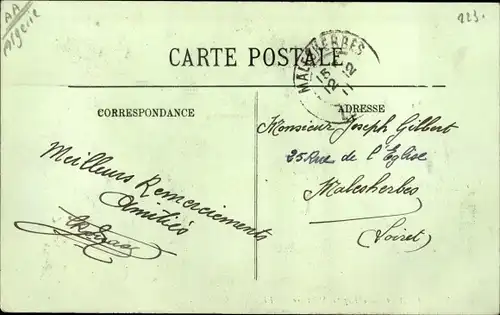 AA
Algérie
223.
CARTE POSTALE
MALESHERBES
CORRESPONDANCE
ADRESSE
Meilleurs Remerciements
Amitiés
Monsieur Joseph Gilbert
25 Rue de l'Eglise
Malesherbes
(Loiret)